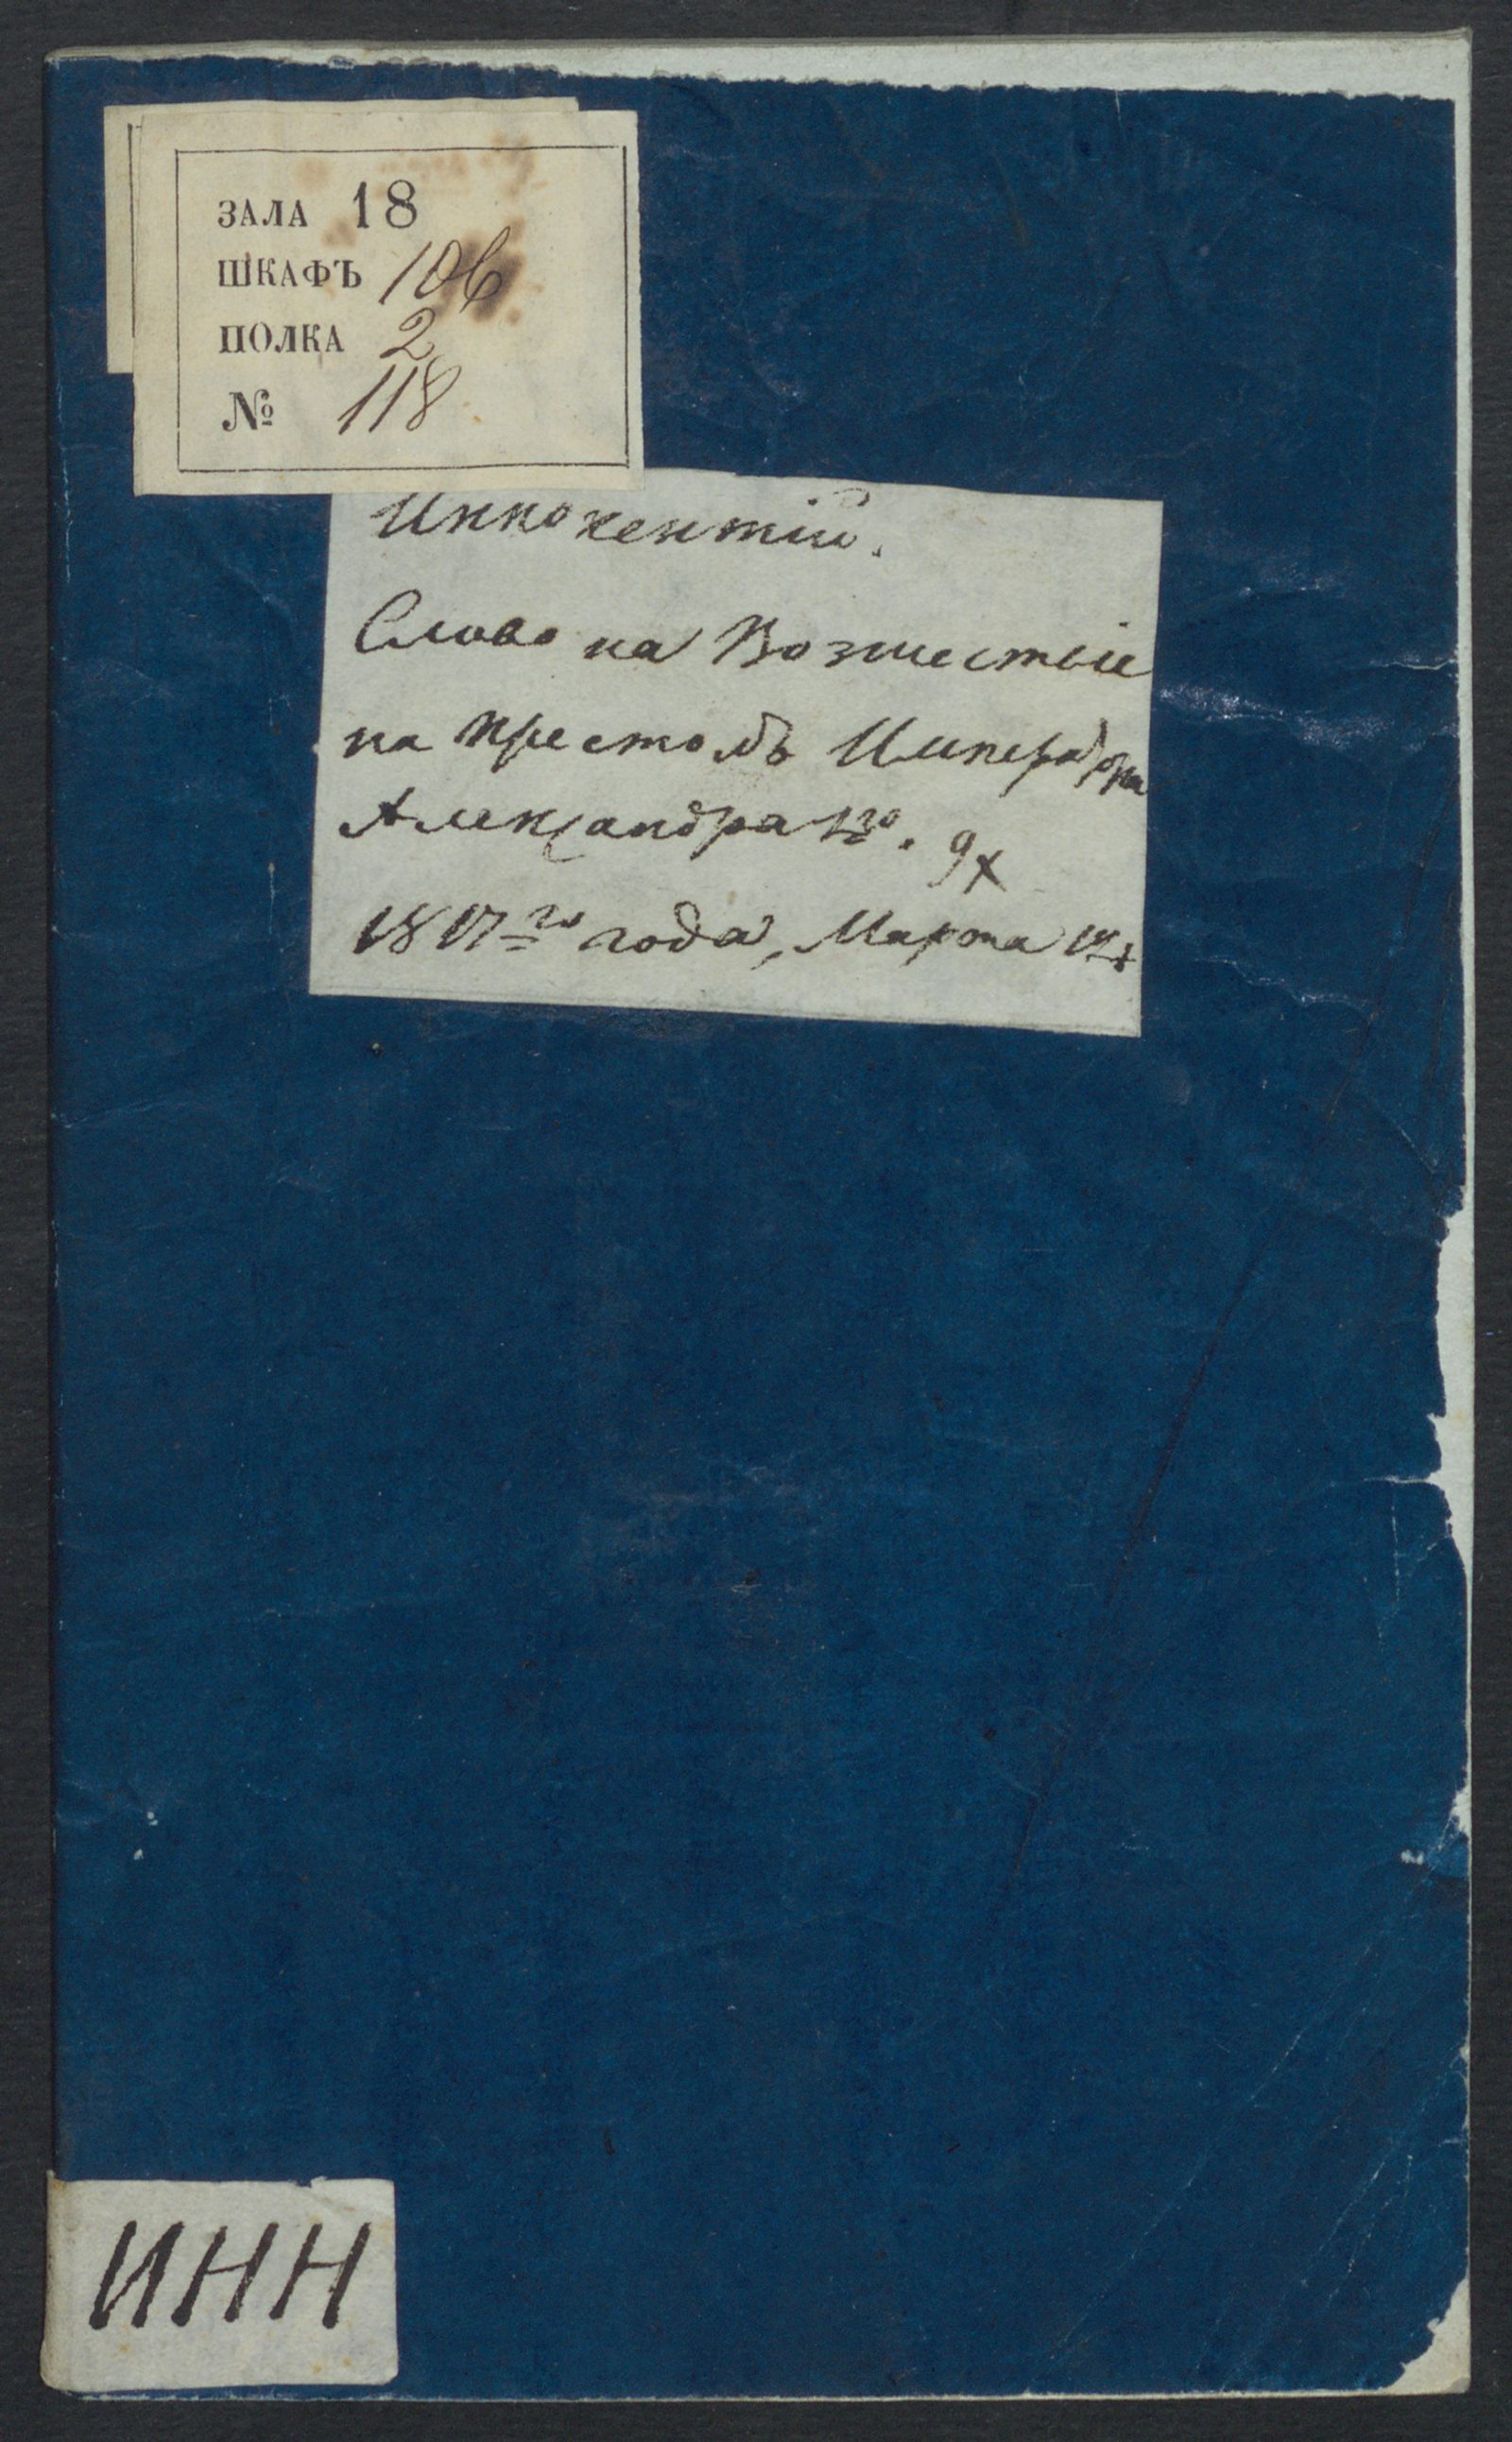 ЗАЛА 18
ШКАФЪ 106
ПОЛКА 2
№ 118
Иннокентій.
Слово на Возшествіе
на престолъ Императора
Александра 1го.
9x
1817го года, Марта
ИНН